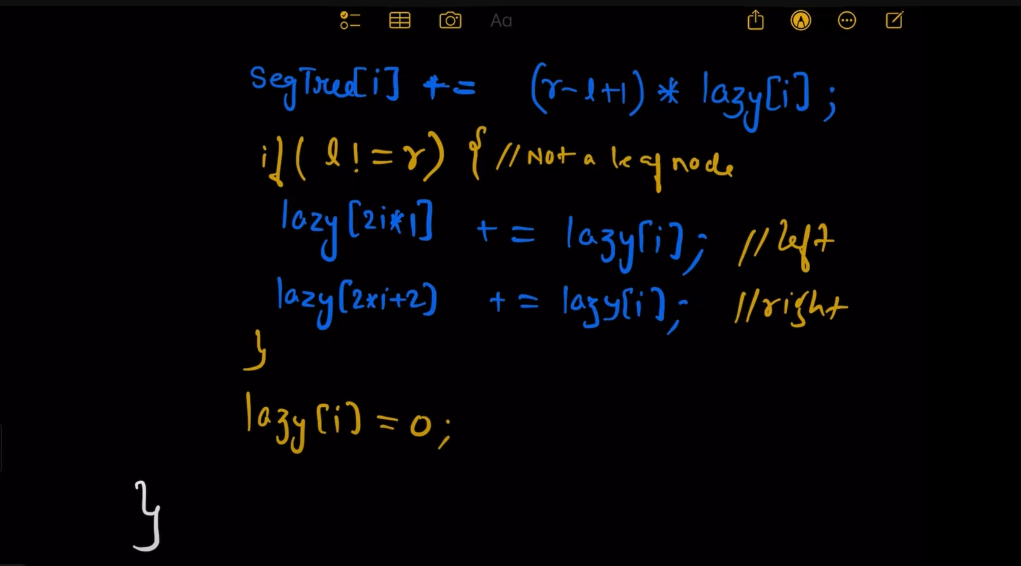 Aa
SegTree[i] += (r-l+1) * lazy[i];
if( l != r) { // Not a leaf node
lazy[2i*1] += lazy[i]; // left
lazy[2*i+2) += lazy[i]; // right
}
lazy[i] = 0;
}